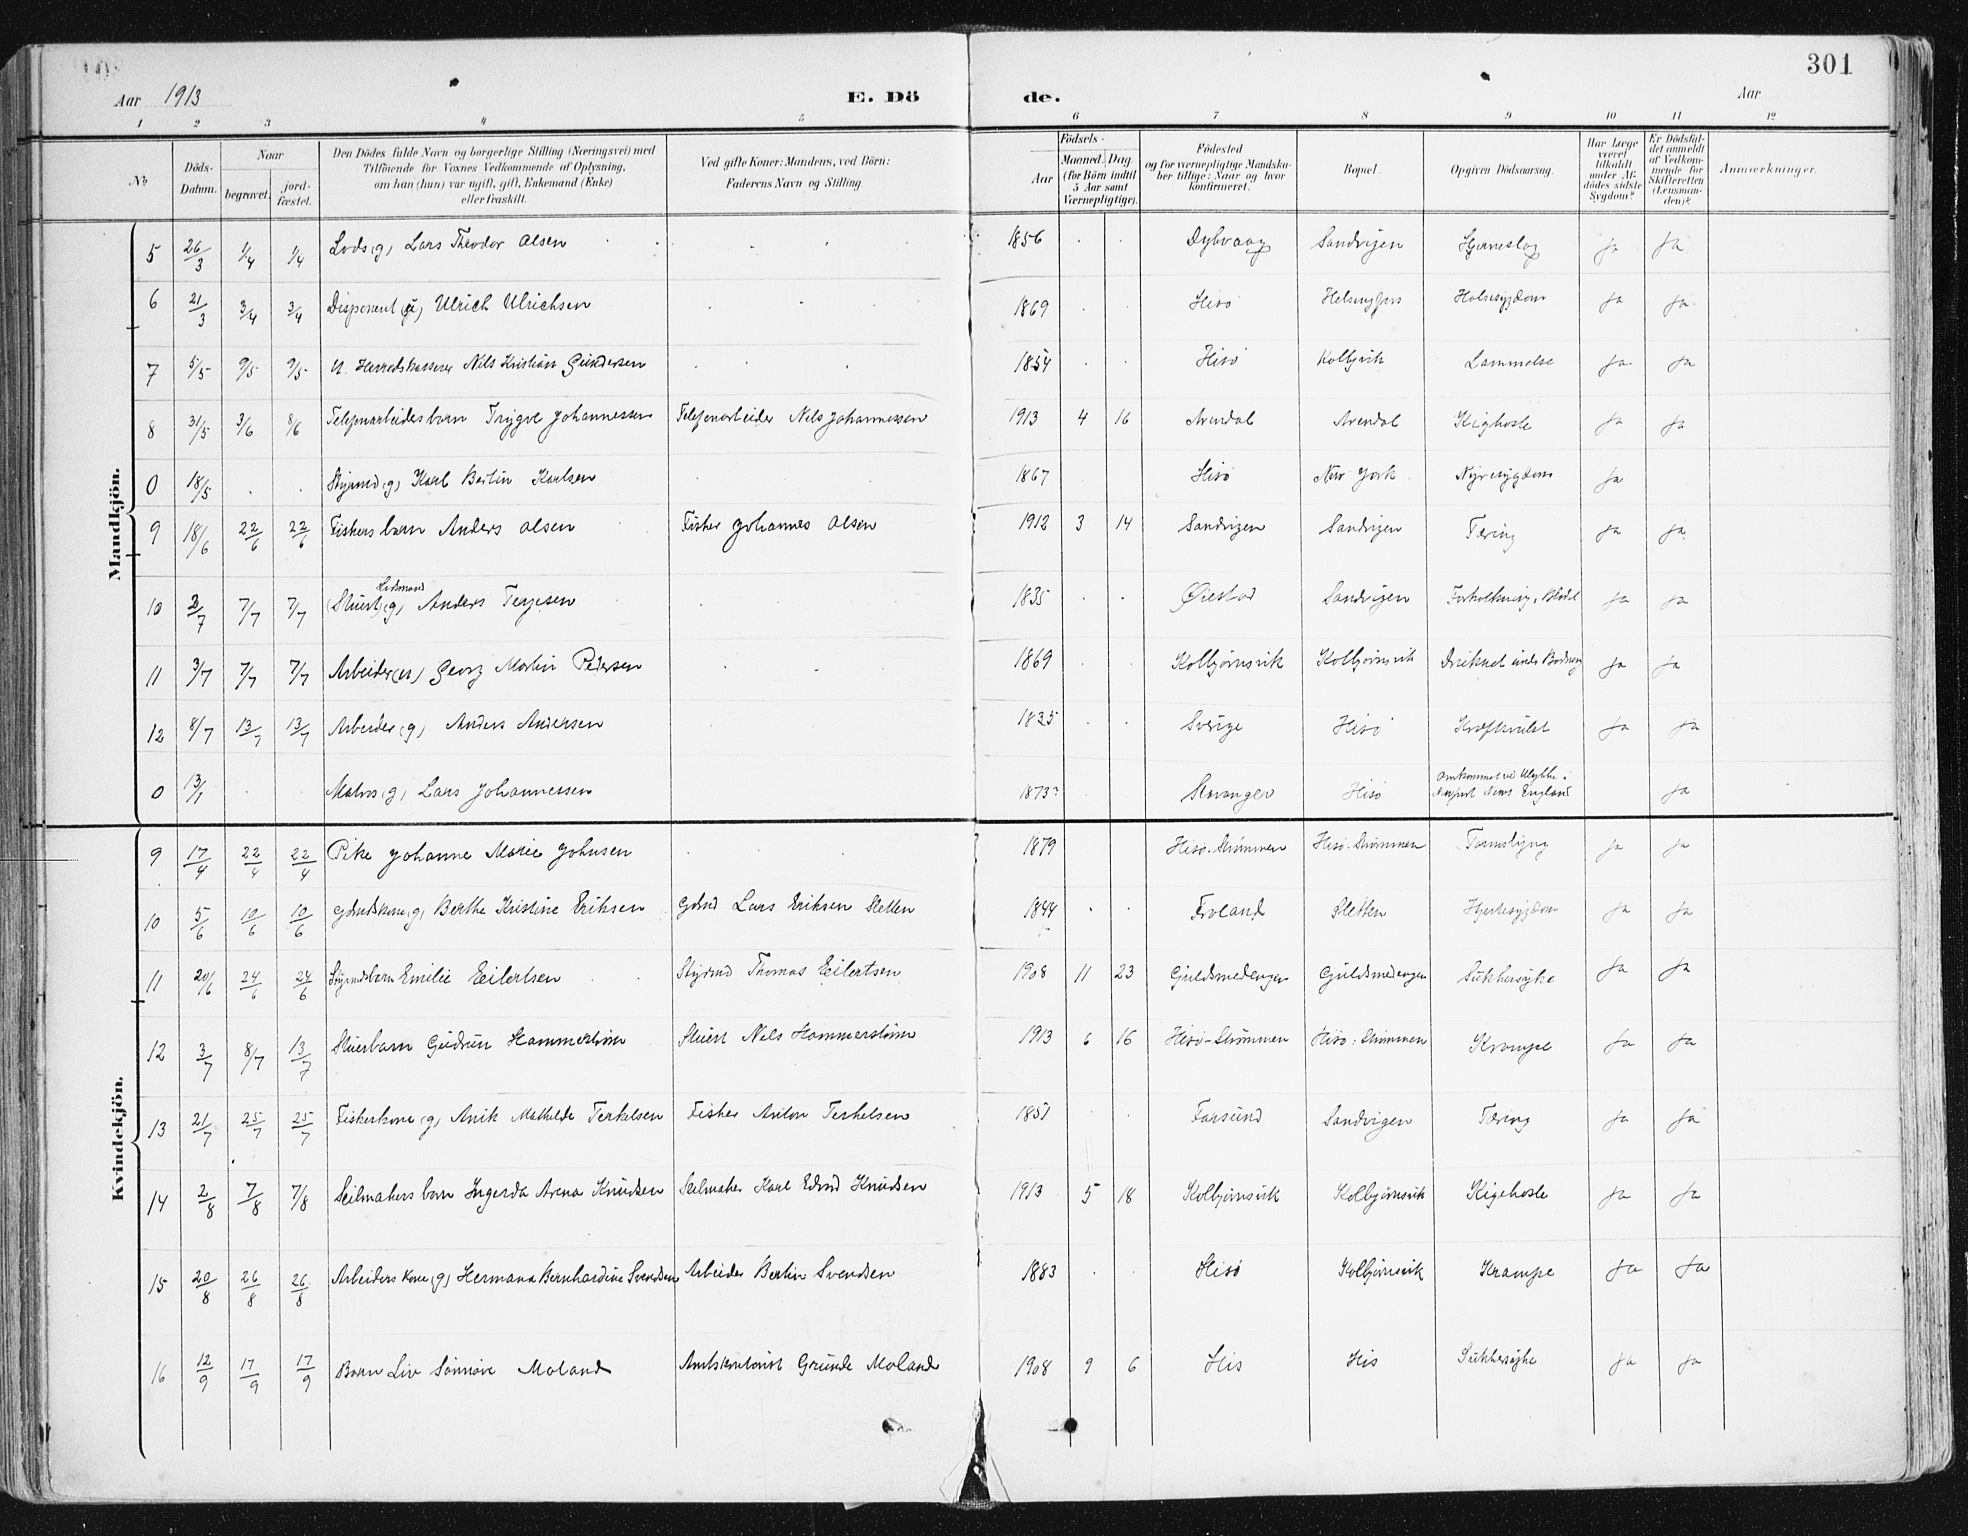 301
Aar 1913 E. Dö de. Aar
1 2 3 4 5 6 7 8 9 10 11 12
No. Döds-Datum. Naar begravet. jord-fæstet. Den Dödes fulde Navn og borgerlige Stilling (Næringsvei) med Tilföiende for Voxnes Vedkommende af Oplysning, om han (hun) var ugift, gift, Enkemand (Enke) eller fraskilt. Ved gifte Koner: Mandens, ved Börn: Faderens Navn og Stilling. Födsels- Aar Maaned. Dag. (for Börn indtil 5 Aar samt Værnepligtige). Födested og for værnepligtige Mandskaber tillige: Naar og hvor konfirmeret. Bopæl. Opgiven Dödsaarsag. Har Læge været tilkaldt under Afdödes sidste Sygdom? Er Dödsfaldet anmeldt af Vedkommende for Skifteretten (Lensmanden)? Anmærkninger.
Mandkjön.
5 26/3 1/4 1/4 Lods (g) Lars Theodor Olsen 1856 Dybvaag Sandvigen Hjerneslag Ja Ja
6 21/3 3/4 3/4 Disponent Ulrich Ulrichsen 1869 Hisø Helsingfors Halssygdom Ja Ja
7 5/5 9/5 9/5 U. Herredskasserer Nils Kristian Gundersen 1854 Hisø Kolbjsvik Lammelse Ja Ja
8 31/5 3/6 8/6 Telefonarbeidersbarn Trygve Johannessen Telefonarbeider Nils Johannessen 1913 4 16 Arendal Arendal Kighoste Ja Ja
0 18/5 Styrmd (g) Karl Bertin Karlsen 1867 Hisø New York Nyresygdom Ja
9 18/6 22/6 22/6 Fiskers barn Anders Olsen Fisker Johannes Olsen 1912 3 14 Sandvigen Sandvigen Tæring Ja Ja
10 2/7 7/7 7/7 Stuert (g) Anders Terjesen 1835 Øiestad Sandvigen Forkalkning, Ja Ja
11 3/7 7/7 7/7 Arbeider (u) Georg Martin Pedersen 1869 Kolbjørnsvik Kolbjørnsvik Druknet under Badning Ja Ja
12 8/7 13/7 13/7 Arbeider (g) Anders Andersen 1835 Sverige Hisø Kræftsvulst Ja Ja
0 13/1 Matros (g) Lars Johannessen 1873? Stavanger Hisø Omkommet ved Ulykke i Newport News England Ja
Kvindekjön.
9 17/4 22/4 22/4 Pike Johanne Marie Johnsen 1879 Hisø. Strømmen Hisø. Strømmen Tarmslyng Ja Ja
10 5/6 10/6 10/6 Gdmdskone (g) Berthe Kristine Eriksen Gdmd Lars Eriksen Sletten 1844 Froland Sletten Hjertesygdom Ja Ja
11 20/6 24/6 24/6 Styrmdsbarn Emilie Eilertsen Styrmd Thomas Eilertsen 1908 11 23 Guldsmedengen Guldsmedengen Sukkersyke Ja Ja
12 3/7 8/7 13/7 Stuertbarn Gudrun Hammerstrøm Stuert Nils Hammerstrøm 1913 6 16 Hisø-Strømmen Hisø: Strømmen Krampe Ja Ja
13 21/7 25/7 25/7 Fiskerkone (g) Anik Mathilde Terkelsen Fisker Anton Terkelsen 1851 Farsund Sandvigen Tæring Ja Ja
14 2/8 7/8 7/8 Seilmakers barn Ingerda Arena Knudsen Seilmaker Karl Edvard Knudsen 1913 5 18 Kolbjørnsvik Kolbjørnsvik Kigehoste Ja Ja
15 20/8 26/8 26/8 Arbeiders kone (g) Hermana Bernhardine Svendsen Arbeider Bertin Svendsen 1883 Hisø Kolbjørnsvik Krampe Ja Ja
16 12/9 17/9 17/9 Barn Liv Sønnøve Moland Amtskontorist Grunde Moland 1908 9 6 His His Sukkersyke Ja Ja